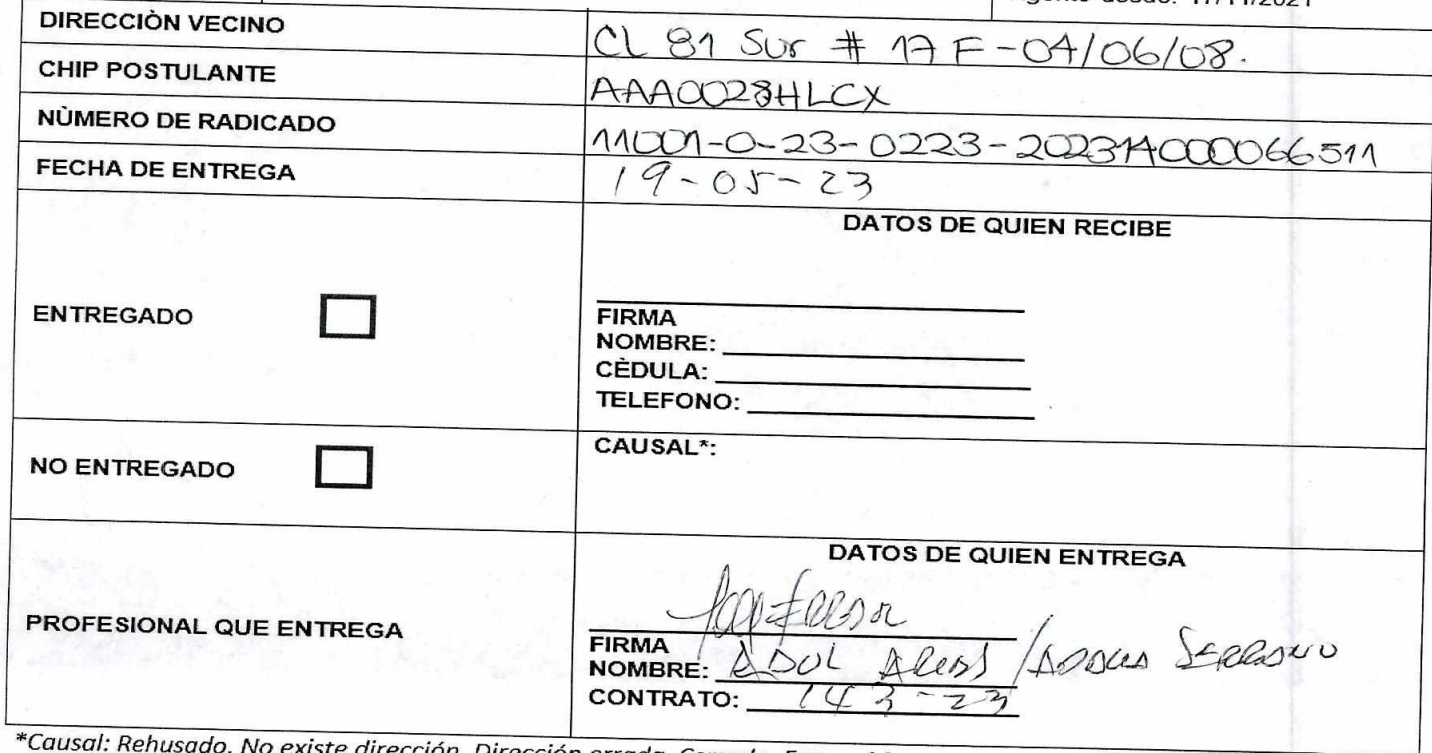 desde: 17/11/2021
DIRECCIÒN VECINO
CL 81 Sur # 17 F-04/06/08.
CHIP POSTULANTE
AAA0028HLCX
NÙMERO DE RADICADO
11001-0-23-0223-202314000066511
FECHA DE ENTREGA
19-05-23
DATOS DE QUIEN RECIBE
ENTREGADO
FIRMA
NOMBRE:
CÈDULA:
TELEFONO:
NO ENTREGADO
CAUSAL*:
DATOS DE QUIEN ENTREGA
PROFESIONAL QUE ENTREGA
FIRMA
NOMBRE: / SERRANO
CONTRATO: 143-23
*Causal: Rehusado, No existe dirección, Dirección errada,